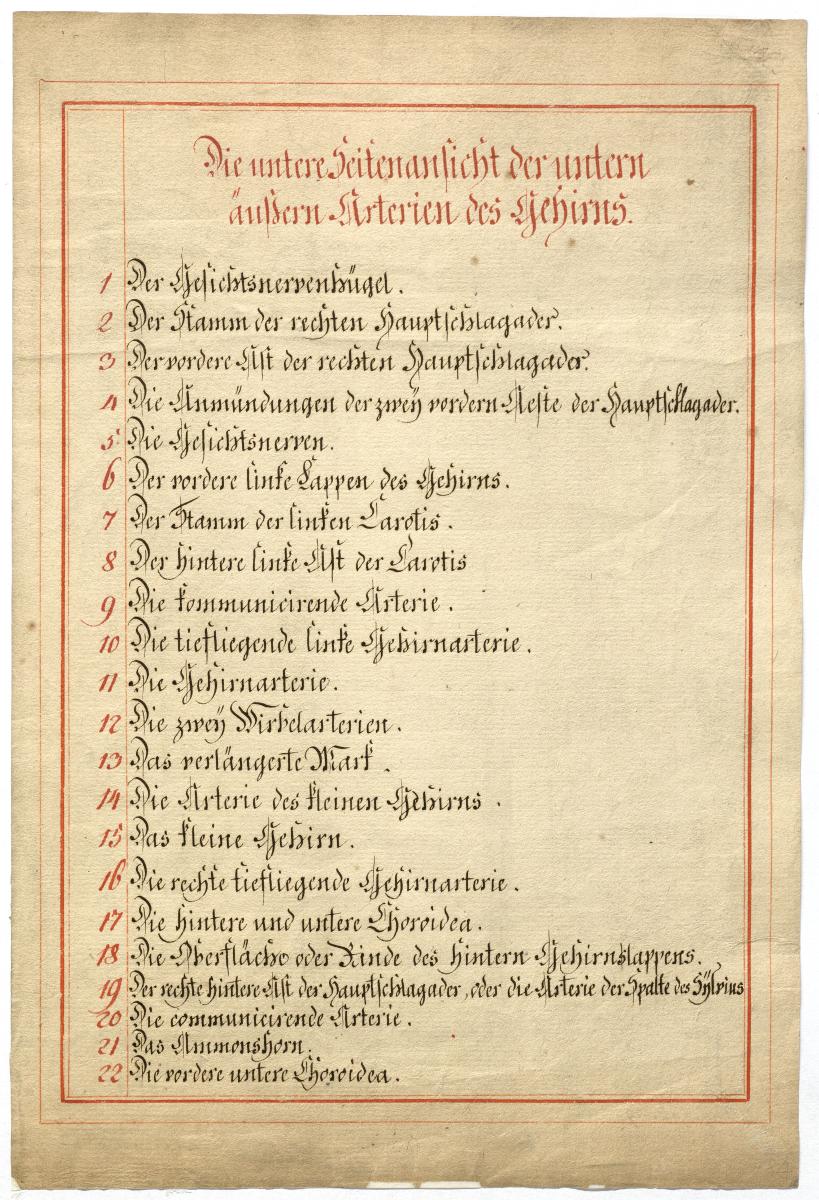 Die untere Seitenansicht der untern
äußern Arterien des Gehirns.
1 Der Gesichtsnervenhügel.
2 Der Stamm der rechten Hauptschlagader.
3 Der vordere Ast der rechten Hauptschlagader.
4 Die Anmündungen der zweÿ vordern Aeste der Hauptschlagader.
5 Die Gesichtsnerven.
6 Der vordere linke Lappen des Gehirns.
7 Der Stamm der linken Carotis.
8 Der hintere linke Ast der Carotis
9 Die kommunicirende Arterie.
10 Die tiefliegende linke Gehirnarterie.
11 Die Gehirnarterie.
12 Die zweÿ Wirbelarterien.
13 Das verlängerte Mark.
14 Die Arterie des kleinen Gehirns.
15 Das kleine Gehirn.
16 Die rechte tiefliegende Gehirnarterie.
17 Die hintere und untere Choroidea.
18 Die Oberfläche oder Rinde des hintern Gehirnslappens.
19 Der rechte hintere Ast der Hauptschlagader, oder die Arterie der Spalte des Sÿlvius
20 Die communicirende Arterie.
21 Das Ammonshorn.
22 Die vordere untere Choroidea.